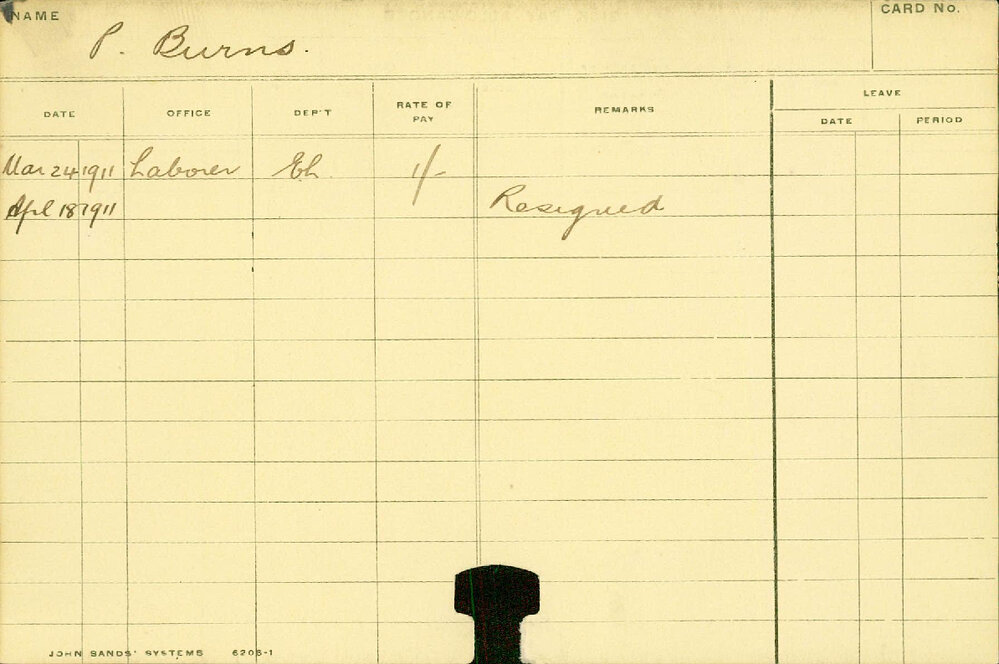 NAME
CARD No.
P. Burns.
LEAVE
DATE OFFICE DEP'T RATE OF PAY REMARKS DATE PERIOD
Mar 24 1911 Laborer Eh 1/-
Apl 18 1911 Resigned
JOHN SANDS' SYSTEMS 6206-1